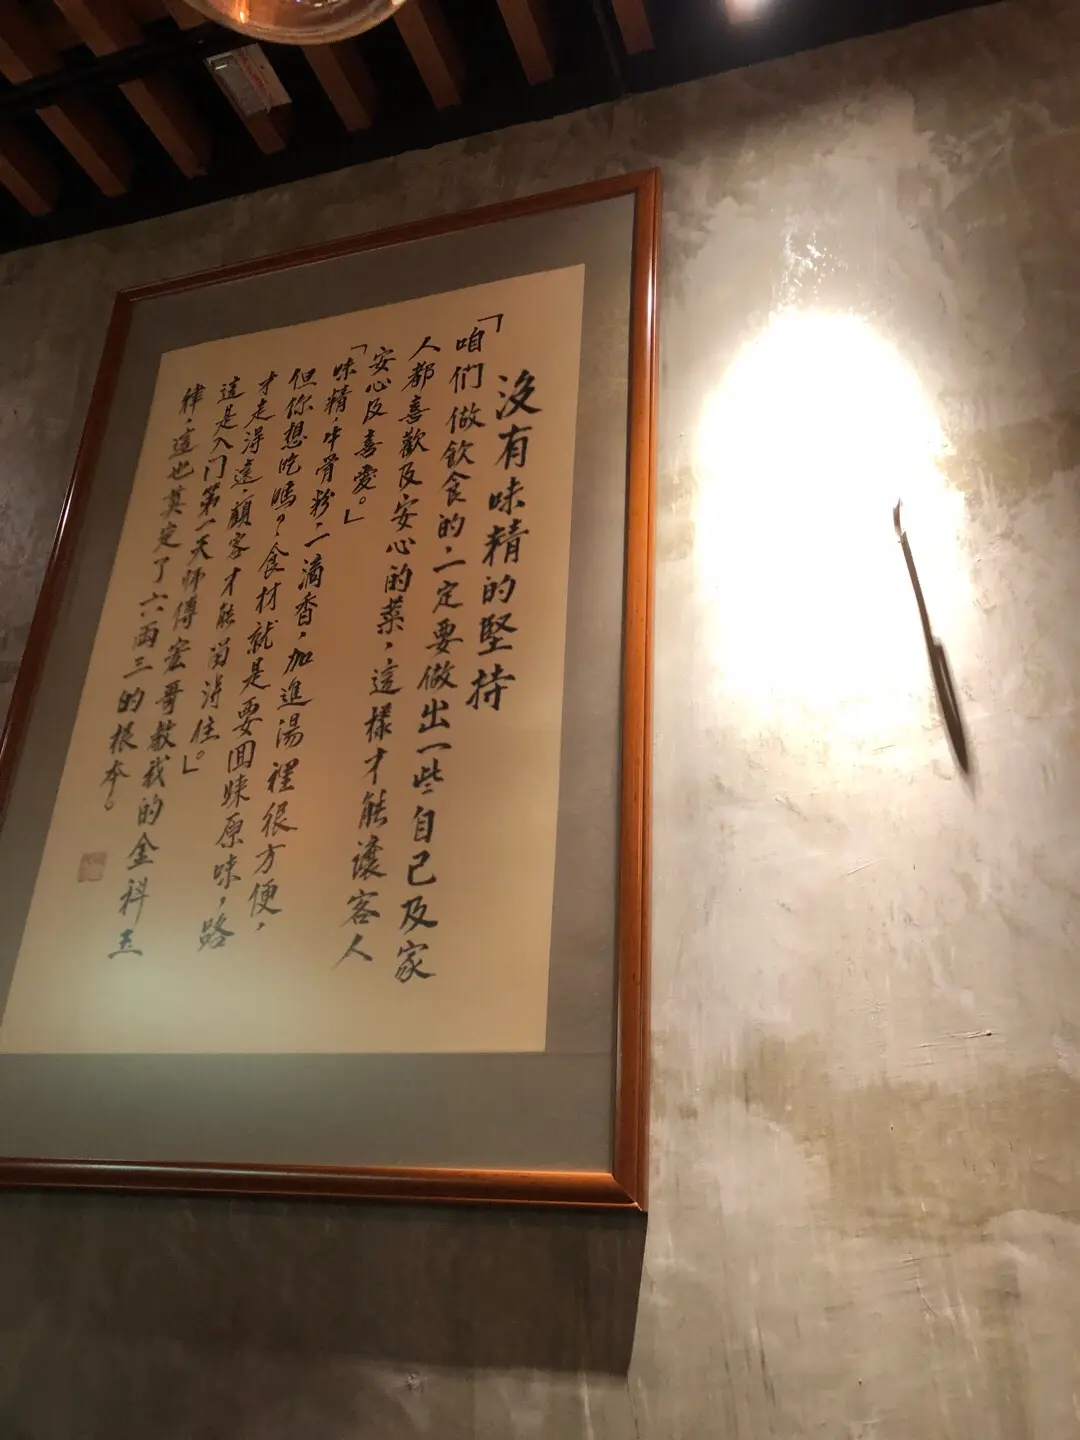 沒有味精的堅持
「咱们做飲食的,一定要做出一些自己及家
人都喜歡及安心的菜,這樣才能讓客人
安心及喜愛。」
「味精,牛骨粉,一滴香,加進湯裡很方便,
但你想吃嗎?食材就是要囬味原味,路
才走得遠,顧客才能留得住。」
這是入门第一天师傅宏哥教我的金科玉
律,這也奠定了六兩三的根本。